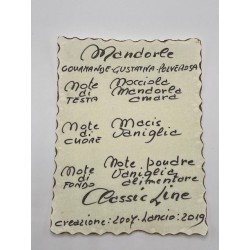 Mandorle
GOURMANDE-GUSTATIVA-POLVEROSA
Note di TESTA
Nocciola
Mandorla
amara
Note di CUORE
Macis
Vaniglia
Note di FONDO
Note poudre
Vaniglia
alimentare
Classic Line
creazione:2007-Lancio:2019